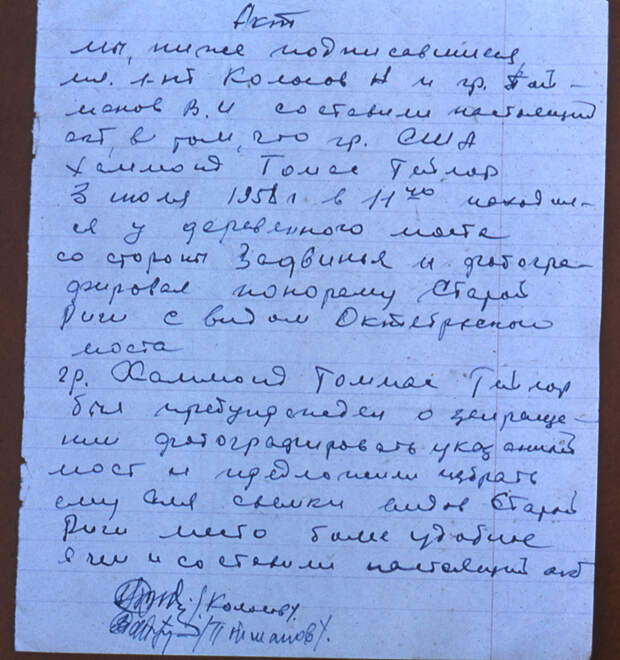 Акт
мы, ниже подписавшиеся
мл. л-нт Колосов Н и гр. Пой-
манов В.И составили настоящий
акт, в том, что гр. США
Хаммонд Томас Тейлор
3 июля 1958 г в 11 40 находил-
ся у деревенного моста
со стороны Задвинья и фотогра-
фировал понораму Старой
Риги с видом Октябрьского
моста
гр. Хаммонд Томмас Тейлор
был предупрежден о запреще-
нии фотографировать указанный
мост и предложили избрать
ему для съемки видов Старой
Риги место более удобное
о чем и составили настоящий акт
/Колосов/.
/Пойманов/.